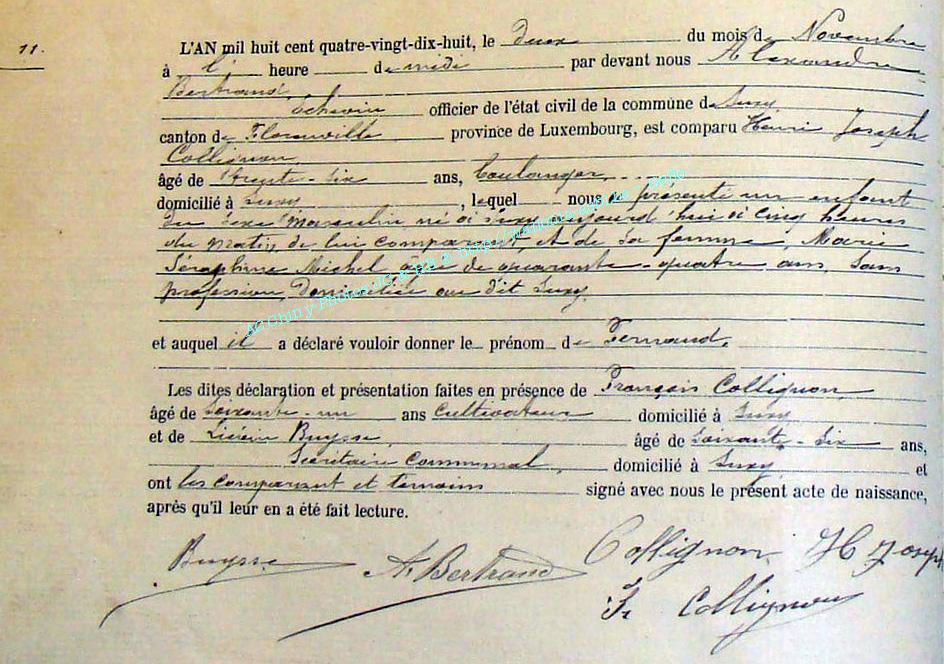 11.
L'AN mil huit cent quatre-vingt-dix-huit, le deux du mois de Novembre
à l' heure de midi par devant nous Alexandre
Bertrand,
Echevin officier de l'état civil de la commune de Suxy
canton de Florenville province de Luxembourg, est comparu Henri Joseph
Collignon,
âgé de trente-six ans, boulanger,
domicilié à Suxy, lequel nous a présenté un enfant
du sexe masculin né à Suxy aujourd'hui à cinq heures
du matin, de lui comparant, et de sa femme, Marie
Séraphine Michel âgée de quarante-quatre ans, sans
profession, domiciliée au dit Suxy,
et auquel il a déclaré vouloir donner le prénom de Fernand.
Les dites déclaration et présentation faites en présence de François Collignon,
âgé de soixante-un ans cultivateur domicilié à Suxy
et de Buysse, âgé de soixante-six ans,
Secrétaire communal, domicilié à Suxy, et
ont les comparant et temoins signé avec nous le présent acte de naissance,
après qu'il leur en a été fait lecture.
Buysse A Bertrand Collignon H Joseph
Fr Collignon